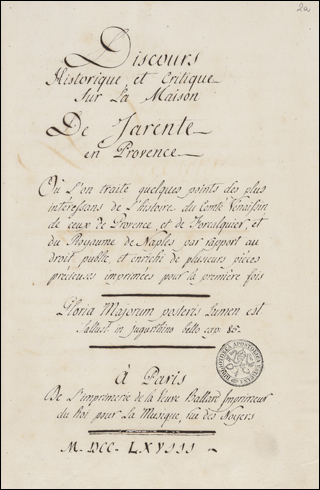 2a
Discours
Historique et Critique
Sur La Maison
De Jarente
en Provence
Où L'on traite quelques points des plus
intéressans de L'histoire du Comté Venaissin
de ceux de Provence, et de Forcalquier, et
du Royaume de Naples par rapport au
droit public, et enrichi de plusieurs pièces
précieuses imprimées pour la première fois
Gloria Majorum posteris Lumen est
Sallust. in Jugurthino bello cap. 85.
À Paris
De L'imprimerie de la Veuve Ballard Imprimeur
du Roi pour La Musique, rue des Noyers
M. DCC. LXVIII